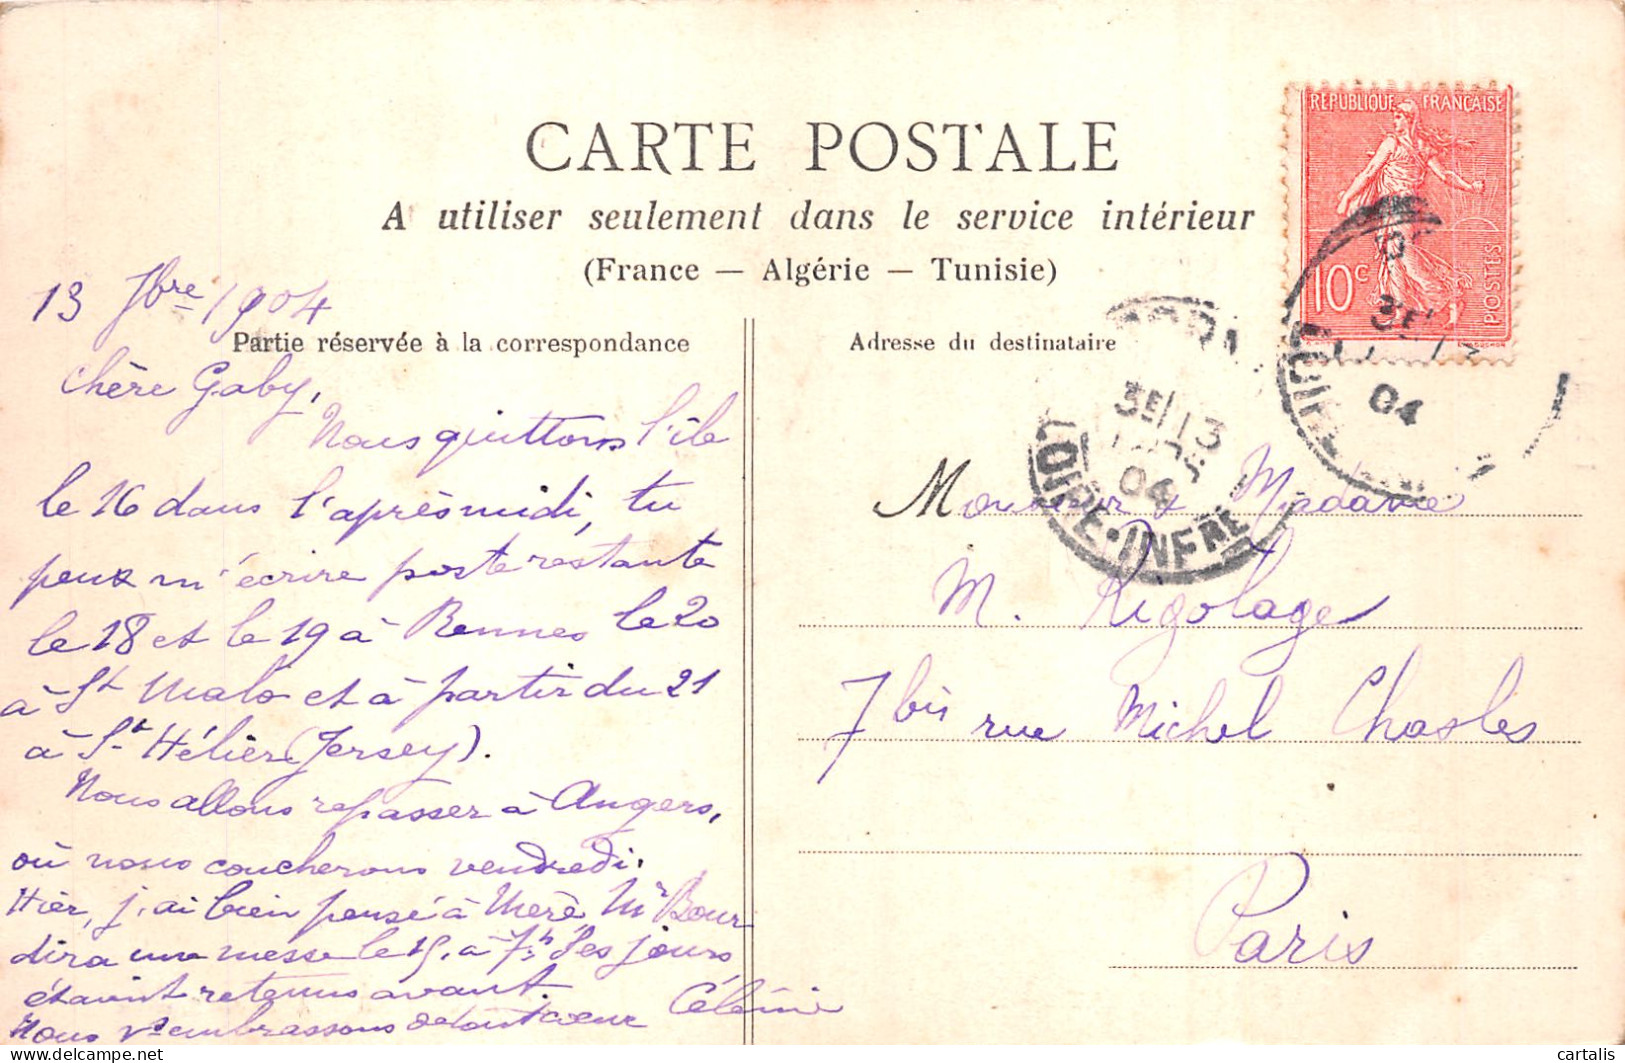 CARTE POSTALE
A utiliser seulement dans le service intérieur
(France — Algérie — Tunisie)
REPUBLIQUE FRANÇAISE
10c
POSTES
13 7bre 1904
Partie réservée à la correspondance
Adresse du destinataire
chère Gaby,
Nous quittons l'île
le 16 dans l'après midi, tu
peux m'écrire poste restante
le 18 et le 19 à Rennes le 20
à St Malo et à partir du 21
à St Hélier (Jersey).
Nous allons repasser à Angers,
où nous coucherons vendredi.
Hier, j'ai bien pensé à Mère, Mr Bour
dira une messe le 15, à 7h. Les jours
étaient retenus avant.
Nous vs embrassons de tout cœur
Célénie
3E/13
04
LOIRE-INFRE
3E/13
04
Monsieur & Madame
M. Rigolage
7 bis rue Michel Chasles
Paris
cartalis